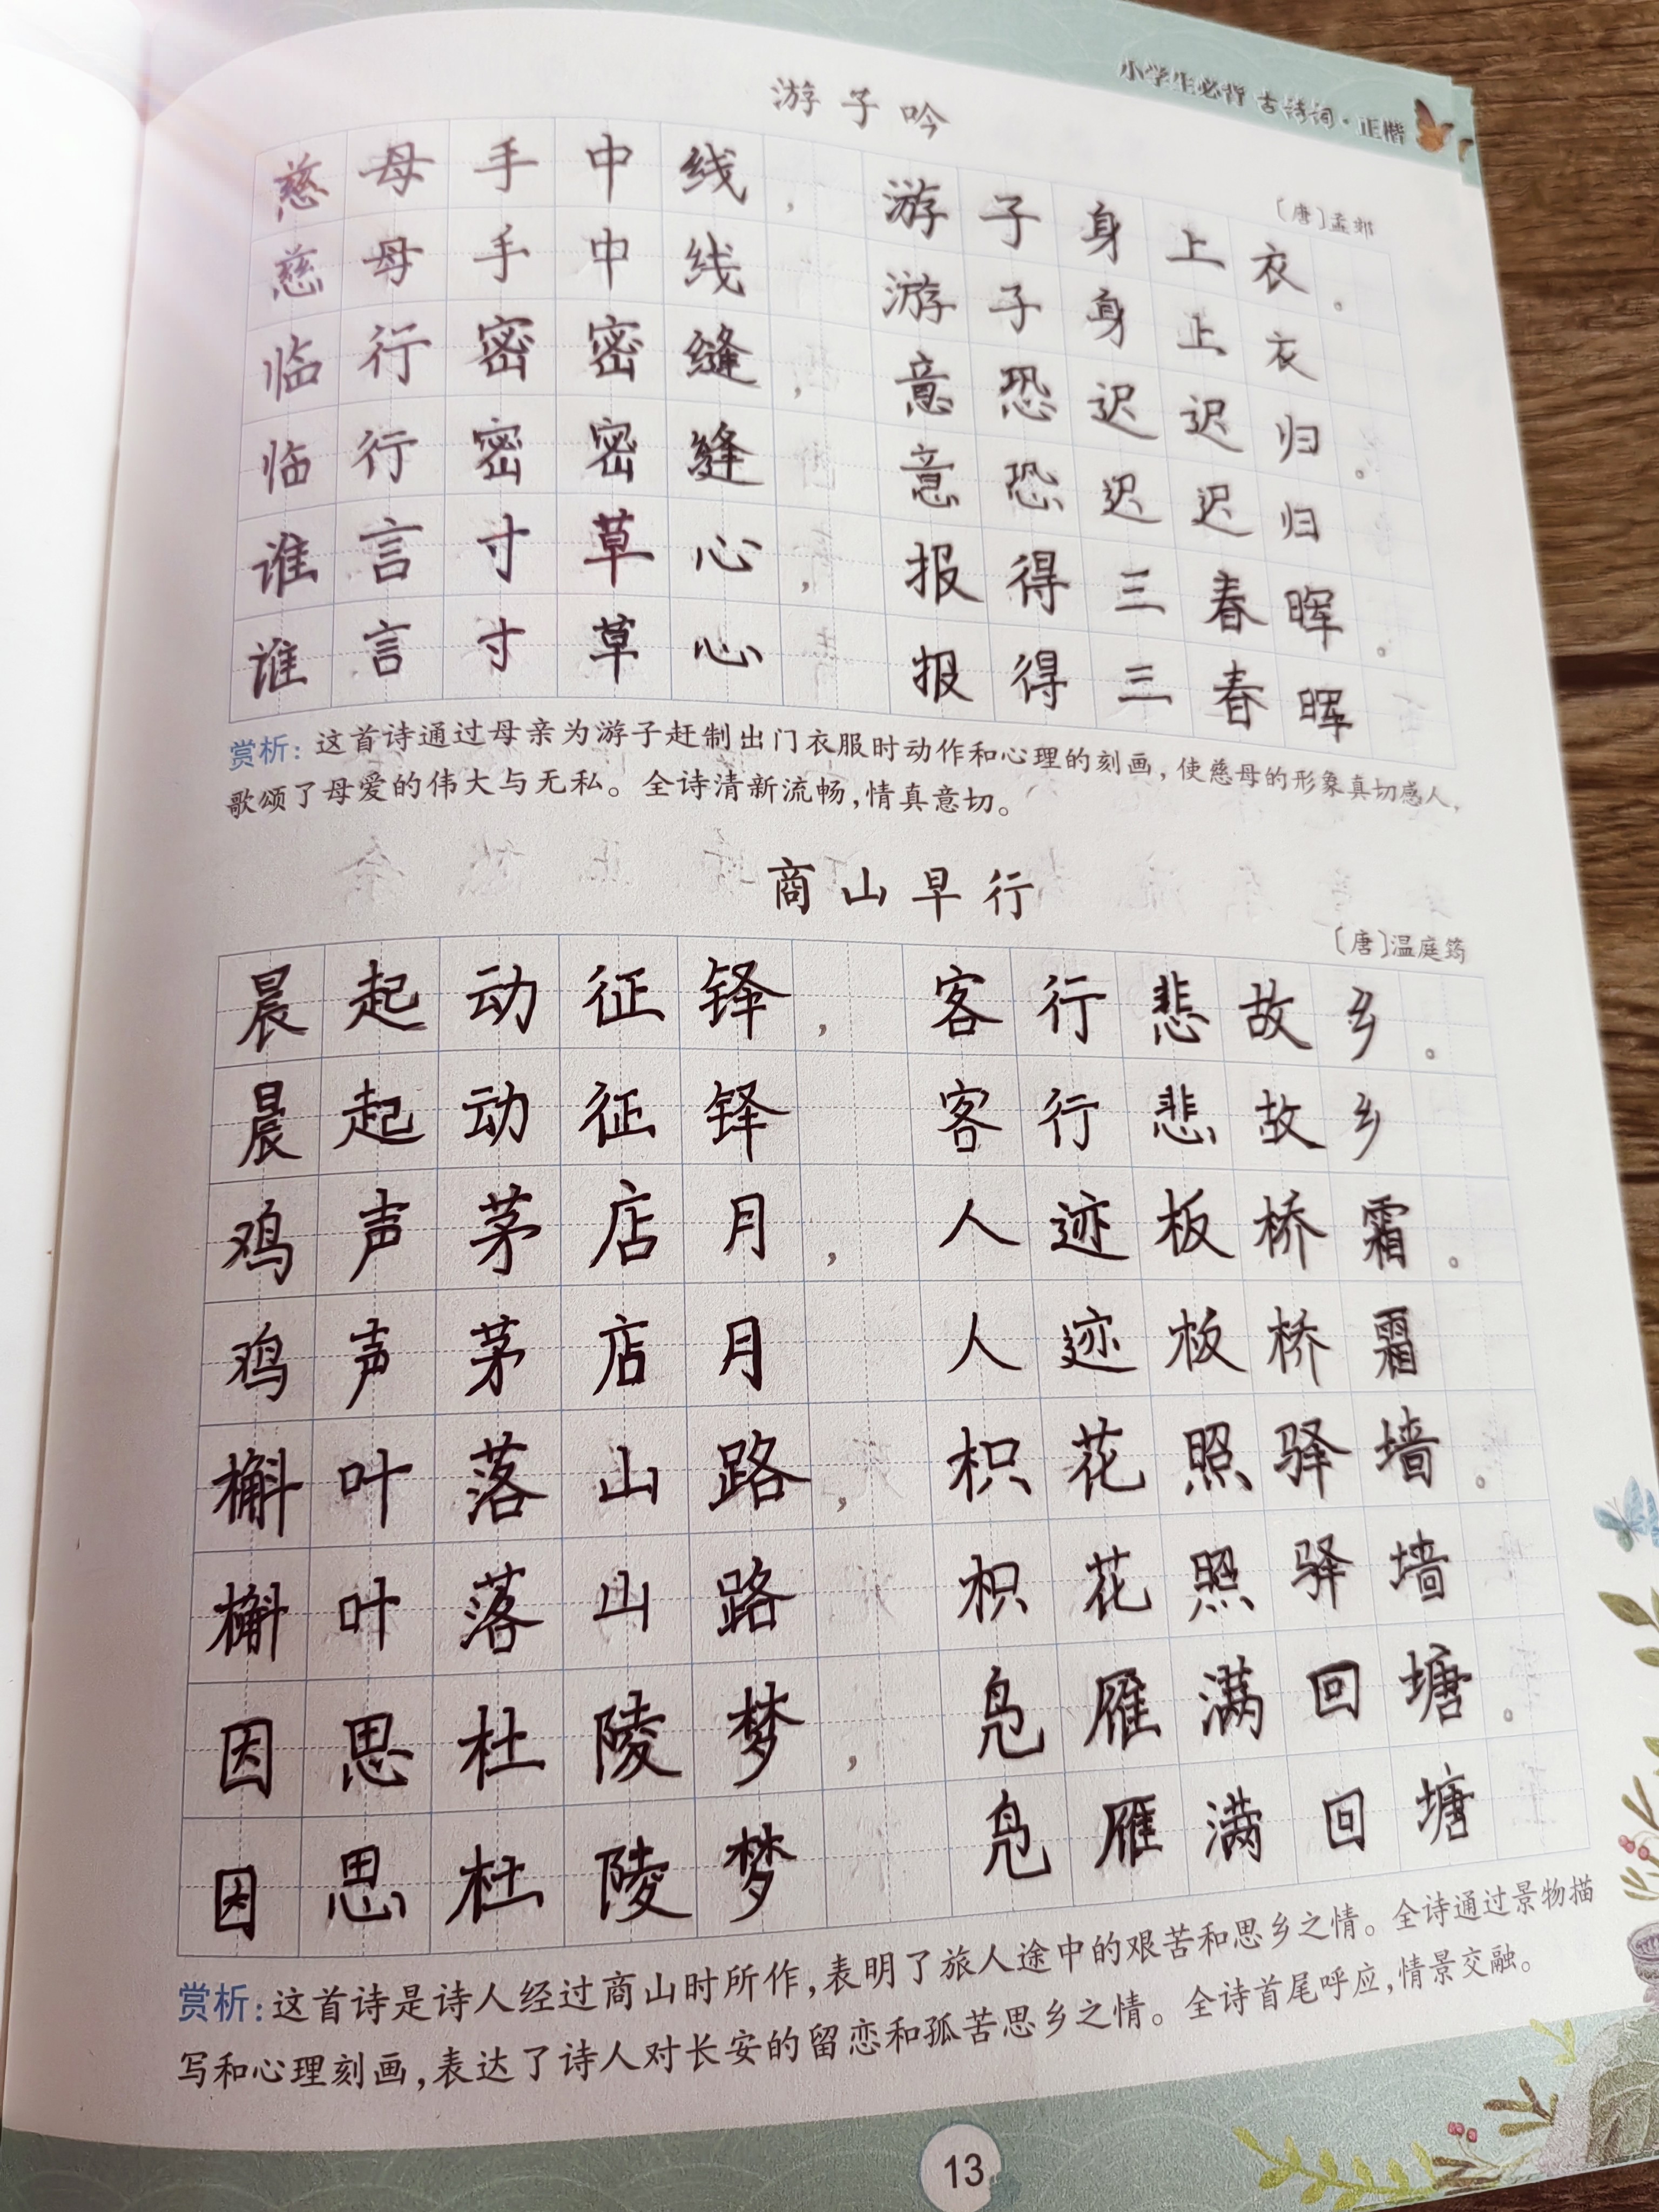 小学生必背 古诗词·正楷
游子吟
〔唐〕孟郊
慈母手中线，游子身上衣。
慈母手中线 游子身上衣
临行密密缝，意恐迟迟归。
临行密密缝 意恐迟迟归
谁言寸草心，报得三春晖。
谁言寸草心 报得三春晖
赏析：这首诗通过母亲为游子赶制出门衣服时动作和心理的刻画，使慈母的形象真切感人，
歌颂了母爱的伟大与无私。全诗清新流畅，情真意切。
商山早行
〔唐〕温庭筠
晨起动征铎，客行悲故乡。
晨起动征铎 客行悲故乡
鸡声茅店月，人迹板桥霜。
鸡声茅店月 人迹板桥霜
槲叶落山路，枳花照驿墙。
槲叶落山路 枳花照驿墙
因思杜陵梦，凫雁满回塘。
因思杜陵梦 凫雁满回塘
赏析：这首诗是诗人经过商山时所作，表明了旅人途中的艰苦和思乡之情。全诗通过景物描
写和心理刻画，表达了诗人对长安的留恋和孤苦思乡之情。全诗首尾呼应，情景交融。
13